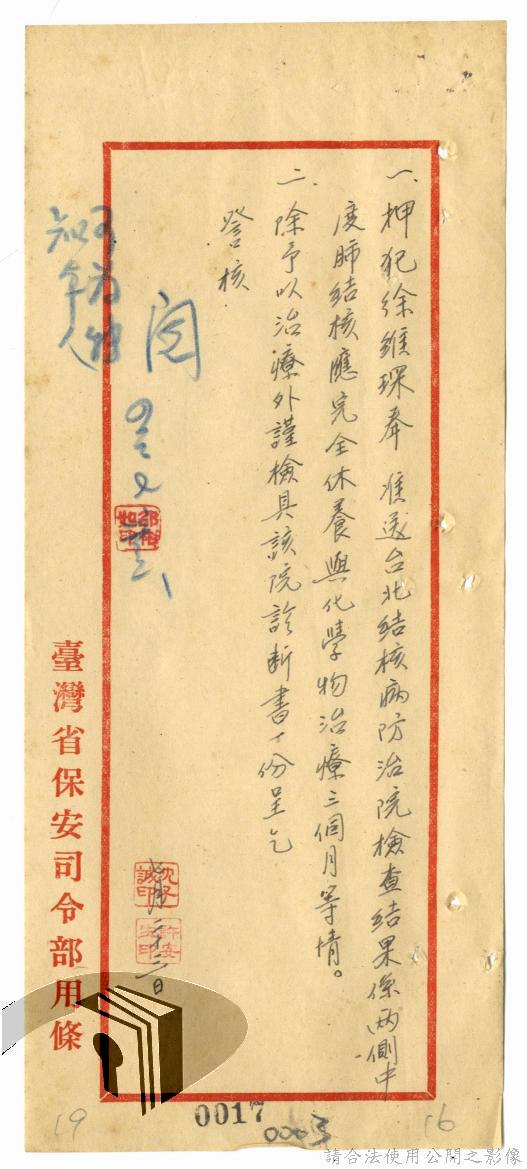 一、押犯徐維琛奉 准送台北結核病防治院檢查結果係兩側中
度肺結核應完全休養與化學物治療三個月等情。
二、除予以治療外謹檢具該院診斷書一份呈乞
詧核
閱
七月二十三日
臺灣省保安司令部用條
0017
19
16
請合法使用公開之影像